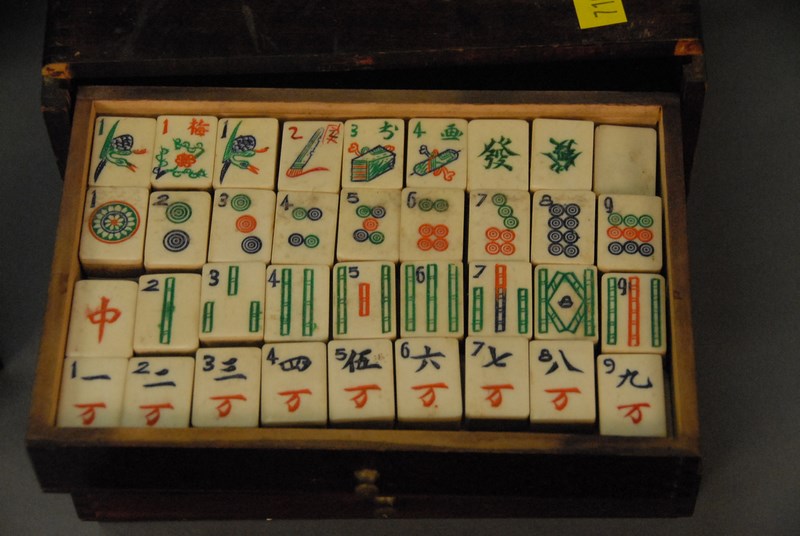 1 1 梅 1 2 3 书 4 画 發 發
1 2 3 4 5 6 7 8 9
中 2 3 4 5 6 7 8 9
1 一 2 二 3 三 4 四 5 伍 6 六 7 七 8 八 9 九
万 万 万 万 万 万 万 万 万